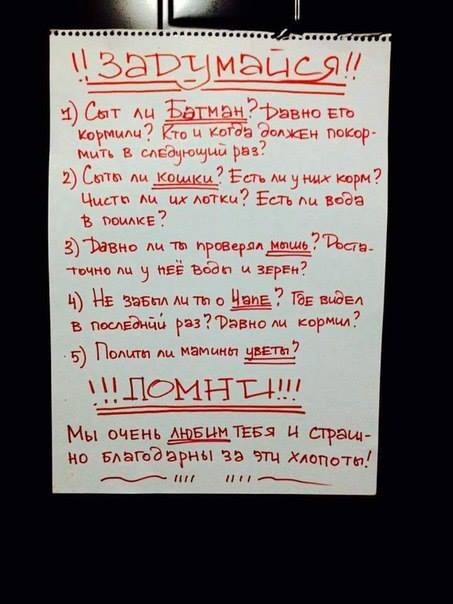 !! ЗАДУМАЙСЯ!!
1) Сыт ли Батман? Давно его
кормили? Кто и когда должен покор-
мить в следующий раз?
2) Сыты ли кошки? Есть ли у них корм?
Чисты ли их лотки? Есть ли вода
в поилке?
3) Давно ли ты проверял мышь? Доста-
точно ли у неё воды и зерен?
4) Не забыл ли ты о Чапе? Где видел
в последний раз? Давно ли кормил?
5) Политы ли мамины цветы?
!!! ПОМНИ!!!
Мы очень любим тебя и страш-
но благодарны за эти хлопоты!